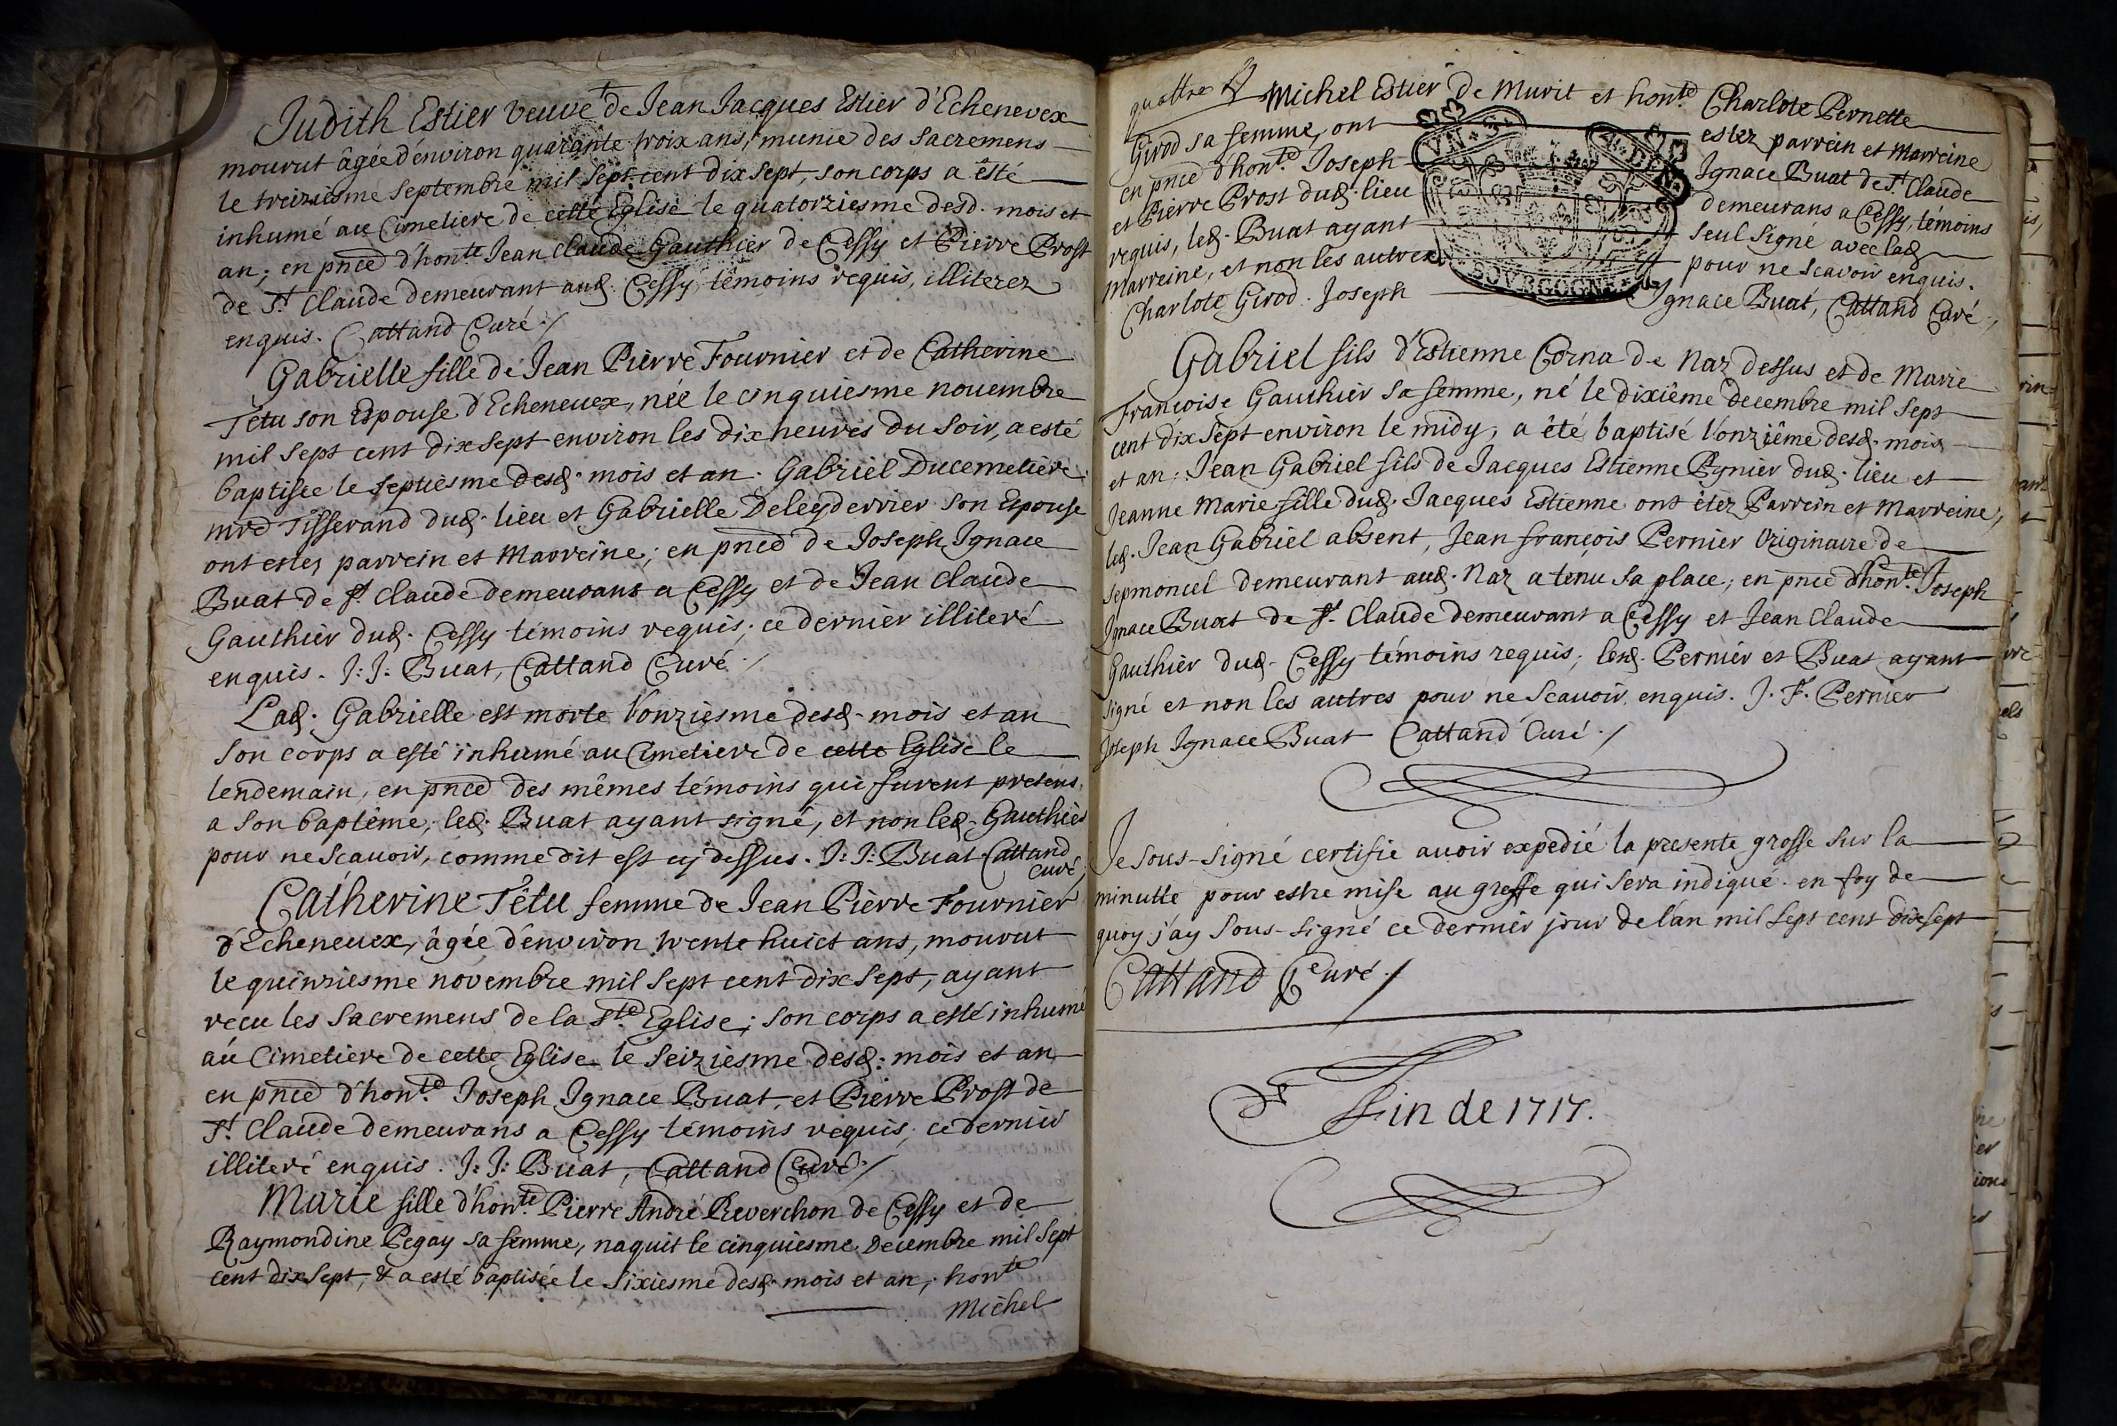 Judith Estier veuve de Jean Jacques Estier d'Echenevex
mourut âgée d'environ quarante trois ans, munie des sacremens
le treiziesme septembre mil sept cent dix sept, son corps a êsté
inhumé au Cimetiere de cette Eglise le quatorziesme desd. mois et
an; en pnce d'honte Jean Claude Gauthier de Cessy et Pierre Prost
de St Claude demeurant aud. Cessy témoins requis, illiterez
enquis. Cattand Curé./
Gabrielle fille de Jean Pierre Fournier et de Catherine
Têtu son Espouse d'Echenevex, née le cinquiesme novembre
mil sept cent dix sept environ les dix heures du soir, a esté
baptisée le septiesme desd. mois et an. Gabriel Ducemetiere
mre Tisserand dud. lieu et Gabrielle Deleyderrier son Espouse
ont estez parrein et Marreine; en pnce de Joseph Ignace
Buat de St. Claude demeurans a Cessy et de Jean Claude
Gauthier dud. Cessy témoins requis; ce dernier illiteré
enquis. J: J: Buat, Cattand Curé./
Lad. Gabrielle est morte l'onziesme desd. mois et an
son corps a esté inhumé au Cimetiere de cette Eglise le
lendemain, en pnce des mêmes témoins qui furent presens
a son baptême; led. Buat ayant signé, et non led. Gauthier
pour ne scavoir, comme dit est cy dessus. J: J: Buat Cattand
curé
Catherine Têtu femme de Jean Pierre Fournier
d'Echenevex, âgée d'environ trente huict ans, mourut
le quinziesme novembre mil sept cent dix sept, ayant
recu les sacremens de la Ste. Eglise; son corps a esté inhumé
au Cimetiere de cette Eglise le seiziesme desd. mois et an
en pnce d'honte. Joseph Ignace Buat, et Pierre Prost de
St. Claude demeurans a Cessy témoins requis; ce dernier
illiteré enquis. J: J: Buat, Cattand Curé./
Marie fille d'honte. Pierre André Reverchon de Cessy et de
Raymondine Pegay sa femme, naquit le cinquiesme decembre mil sept
cent dix sept, & a esté baptisée le sixiesme desd. mois et an; honte
Michel
quattre
Michel Estier de Murit et honte. Charlote Pernette
Girod sa femme, ont estez parrein et Marreine
en pnce d'honte. Joseph Ignace Buat de St. Claude
et Pierre Prost dud. lieu demeurans a Cessy, témoins
requis, led. Buat ayant seul signé avec lad
Marreine, et non les autres pour ne scavoir enquis.
Charlote Girod. Joseph Ignace Buat, Cattand Curé./
BOURGOGNE
Gabriel fils d'Estienne Corna de Naz dessus et de Marie
Francoise Gauthier sa femme, né le dixiême decembre mil sept
cent dix sept environ le midy, a êté baptisé l'onziême desd. mois
et an. Jean Gabriel fils de Jacques Estienne Pynier dud. lieu et
Jeanne Marie fille dud. Jacques Estienne ont êtez Parrein et Marreine,
led. Jean Gabriel absent, Jean françois Pernier Originaire de
septmoncel demeurant aud. Naz a tenu sa place; en pnce d'honte. Joseph
Ignace Buat de St. Claude demeurant a Cessy et Jean Claude
Gauthier dud. Cessy témoins requis; lesd. Pernier et Buat ayant
signé et non les autres pour ne scavoir enquis. J. F. Pernier
Joseph Ignace Buat Cattand Curé./
Je sous-signé certifie avoir expedié la presente grosse sur la
minutte pour estre mise au greffe qui sera indiqué. en foy de
quoy j'ay sous-signé ce dernier jour de l'an mil sept cent dix sept
Cattand Curé./
Fin de 1717.